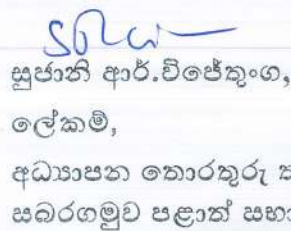 සුජානි ආර්.විජේතුංග,
ලේකම්,
අධ්‍යාපන තොරතුරු
සබරගමුව පළාත් සභා